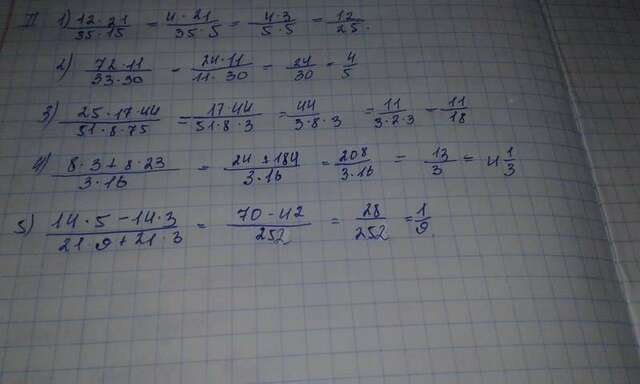 II 1) 12·21/35·15 = 4·21/35·5 = 4·3/5·5 = 12/25.
2) 72·11/33·30 = 24·11/11·30 = 24/30 = 4/5
3) 25·17·44/51·8·75 = 17·44/51·8·3 = 44/3·8·3 = 11/3·2·3 = 11/18
4) 8·3+8·23/3·16 = 24+184/3·16 = 208/3·16 = 13/3 = 4 1/3
5) 14·5-14·3/21·9+21·3 = 70-42/252 = 28/252 = 1/9